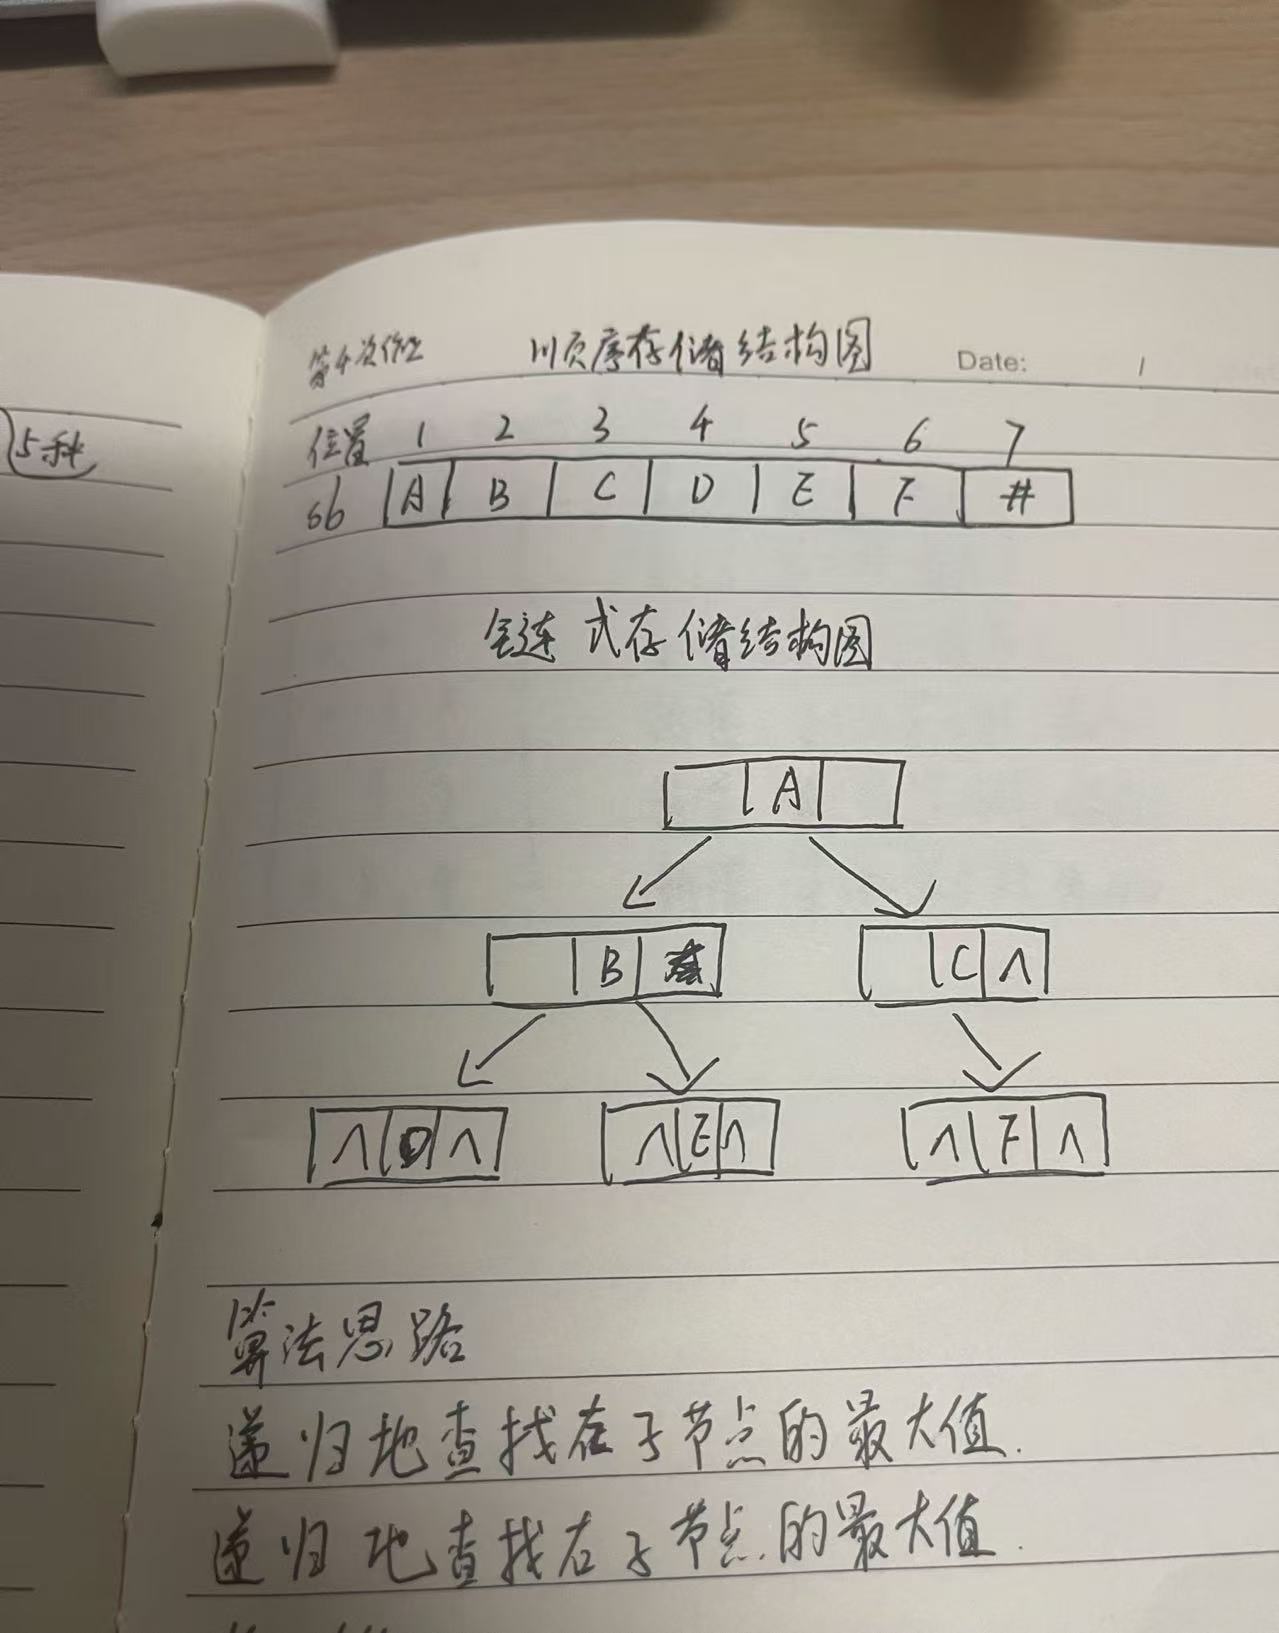 5种
第十次作业 顺序存储结构图 Date: /
位置 1 2 3 4 5 6 7
sb A B C D E F #
链式存储结构图
A
B C ∧
∧ D ∧ ∧ E ∧ ∧ F ∧
算法思路
递归地查找左子节点的最大值.
递归地查找右子节点的最大值.